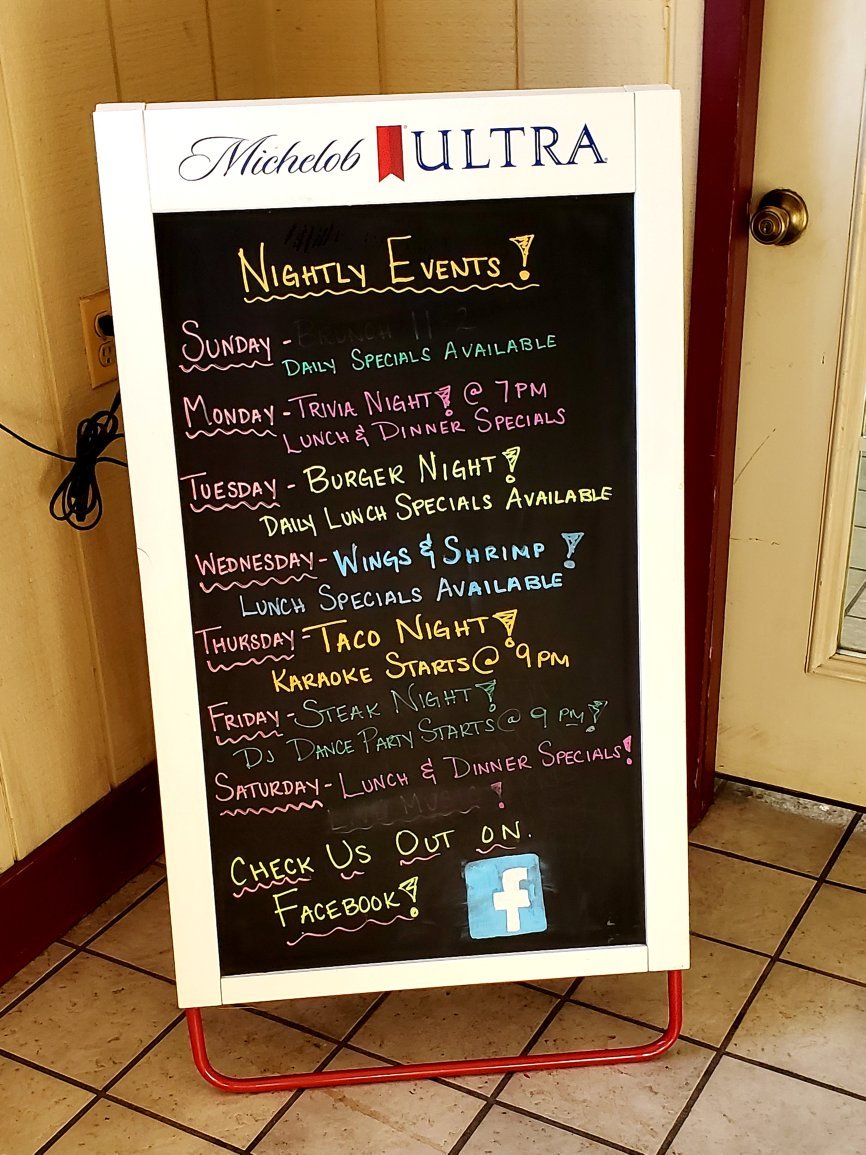 Michelob ULTRA
NIGHTLY EVENTS!
SUNDAY - BRUNCH 11-2
DAILY SPECIALS AVAILABLE
MONDAY - TRIVIA NIGHT! @ 7PM
LUNCH & DINNER SPECIALS
TUESDAY - BURGER NIGHT!
DAILY LUNCH SPECIALS AVAILABLE
WEDNESDAY - WINGS & SHRIMP!
LUNCH SPECIALS AVAILABLE
THURSDAY - TACO NIGHT!
KARAOKE STARTS @ 9PM
FRIDAY - STEAK NIGHT!
DJ DANCE PARTY STARTS @ 9PM!
SATURDAY - LUNCH & DINNER SPECIALS!
!
CHECK US OUT ON.
FACEBOOK! f